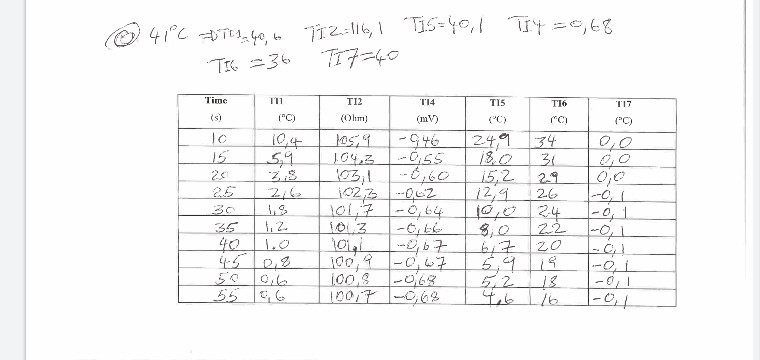 41°C ⇒ TI1=40,6 TI2=116,1 TI5=40,1 TI4=0,68
TI6=36 TI7=40
Time TI1 TI2 TI4 TI5 TI6 TI7
(s) (°C) (Ohm) (mV) (°C) (°C) (°C)
10 10,4 105,9 -0,46 24,9 34 0,0
15 5,9 104,3 -0,55 18,0 31 0,0
20 3,8 103,1 -0,60 15,2 29 0,0
25 2,6 102,3 -0,62 12,9 26 -0,1
30 1,8 101,7 -0,64 10,0 24 -0,1
35 1,2 101,3 -0,66 8,0 22 -0,1
40 1.0 101,1 -0,67 6,7 20 -0,1
45 0,8 100,9 -0,67 5,9 19 -0,1
50 0,6 100,8 -0,68 5,2 18 -0,1
55 0,6 100,7 -0,68 4,6 16 -0,1